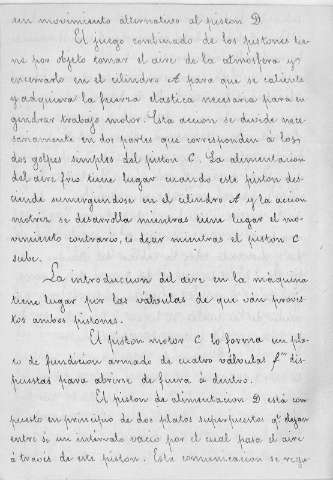 un movimiento alternativo al piston D
El juego combinado de los pistones tie-
ne por objeto tomar el aire de la atmósfera y
encerrarlo en el cilindro A para que se caliente
y adquiera la fuerza elastica necesaria para en
gendrar trabajo motor. Esta accion se divide nece-
sariamente en dos partes que corresponden á los
dos golpes simples del piston C. La alimentacion
del aire frio tiene lugar cuando este piston des-
ciende sumergiendose en el cilindro A y la accion
motriz se desarrolla mientras tiene lugar el mo-
vimiento contrario, es decir mientras el piston C
sube.
La introduccion del aire en la máquina
tiene lugar por las válvulas de que van provis-
tos ambos pistones.
El piston motor C lo forma un pla-
to de fundicion armado de cuatro válvulas dis-
puestas para abrirse de fuera á dentro.
El piston de alimentacion D está com
puesto en principio de dos platos superpuestos qe dejan
entre si un intervalo vacio por el cual pasa el aire
á través de este piston. Esta comunicacion se regu